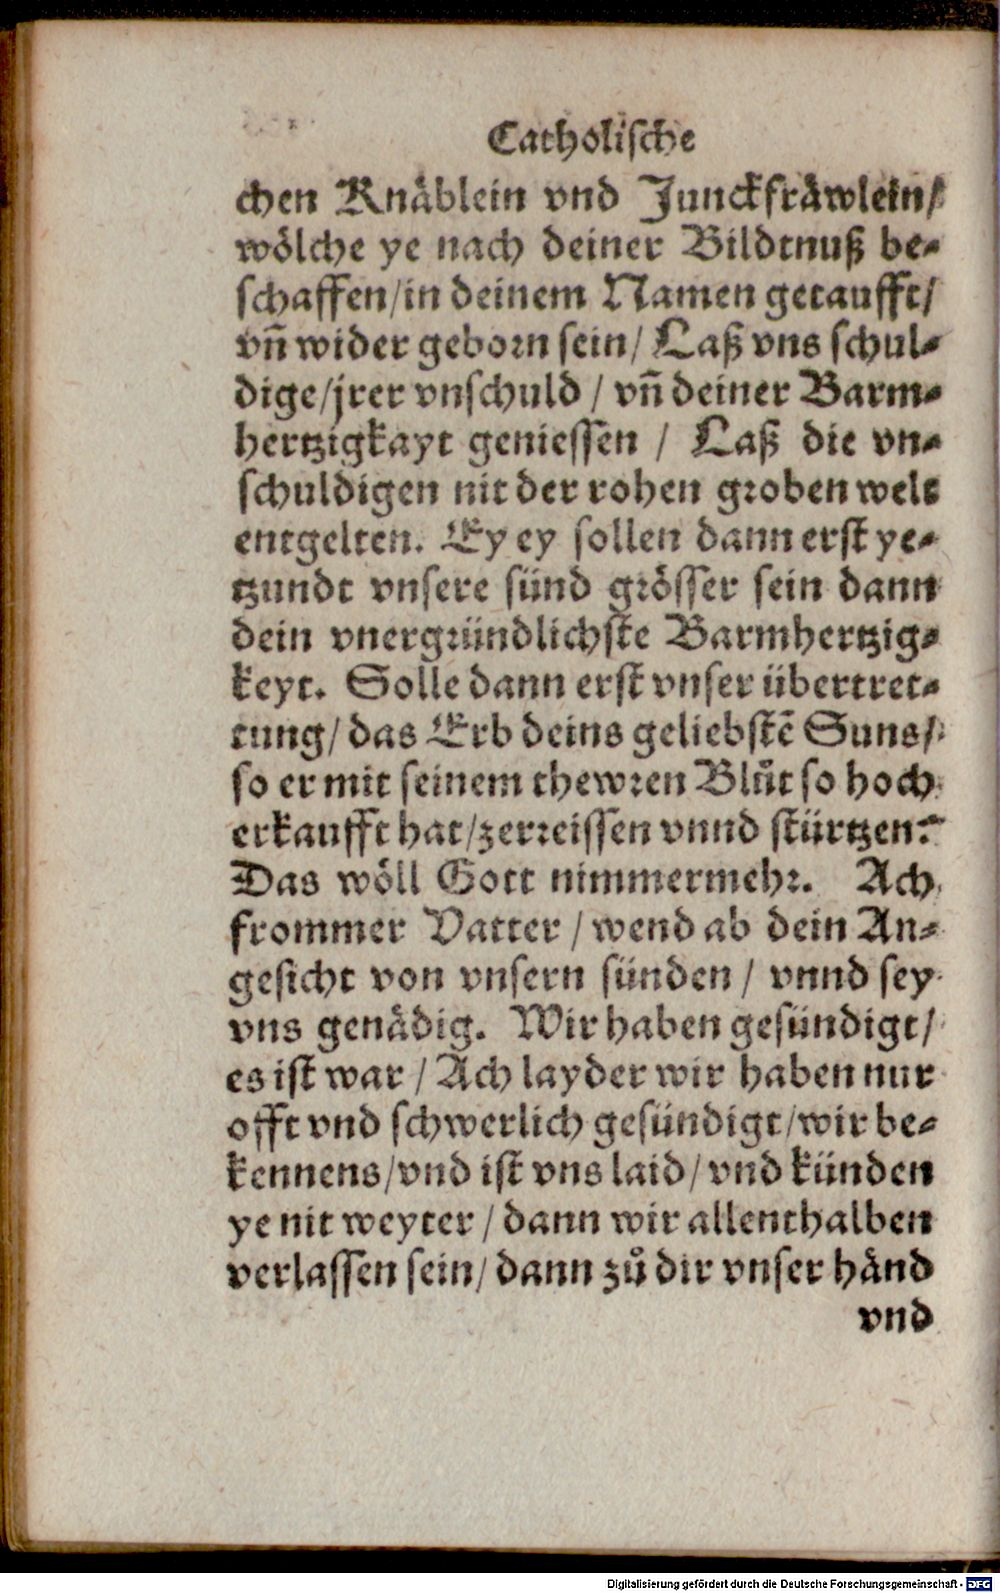 Catholische
chen Knäblein vnd Junckfräwlein/
wölche ye nach deiner Bildtnuß be-
schaffen/in deinem Namen getaufft/
vñ wider geborn sein/ Laß vns schul-
dige/jrer vnschuld / vñ deiner Barm-
hertzigkayt geniessen / Laß die vn-
schuldigen nit der rohen groben welt
entgelten. Ey ey sollen dann erst ye-
tzundt vnsere sünd grösser sein dann
dein vnergründlichste Barmhertzig-
keyt. Solle dann erst vnser übertret-
tung/ das Erb deins geliebstē Suns/
so er mit seinem thewren Blůt so hoch
erkaufft hat/zerreissen vnnd stürtzen?
Das wöll Gott nimmermehr. Ach
frommer Vatter / wend ab dein An-
gesicht von vnsern sünden / vnnd sey
vns genädig. Wir haben gesündigt/
es ist war / Ach layder wir haben nur
offt vnd schwerlich gesündigt/wir be-
kennens/vnd ist vns laid/ vnd künden
ye nit weyter / dann wir allenthalben
verlassen sein/ dann zů dir vnser händ
vnd
Digitalisierung gefördert durch die Deutsche Forschungsgemeinschaft - DFG